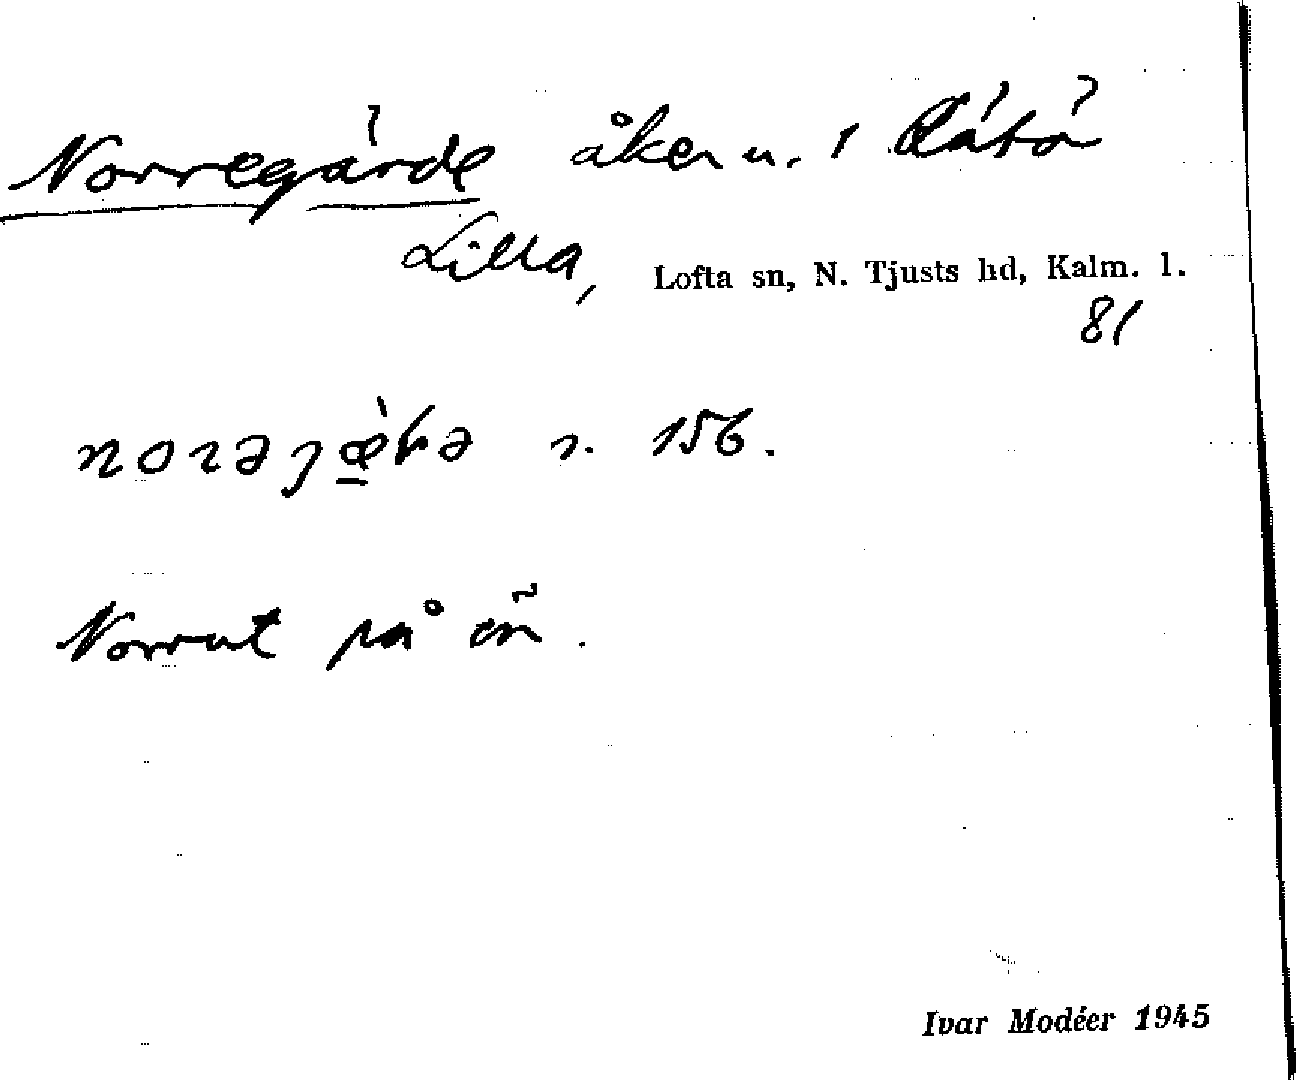 Norregärde åker u. 1 Rätö
Lilla, Lofta sn, N. Tjusts hd, Kalm. l.
81
n. 156.
Norrut på ön.
Ivar Modéer 1945